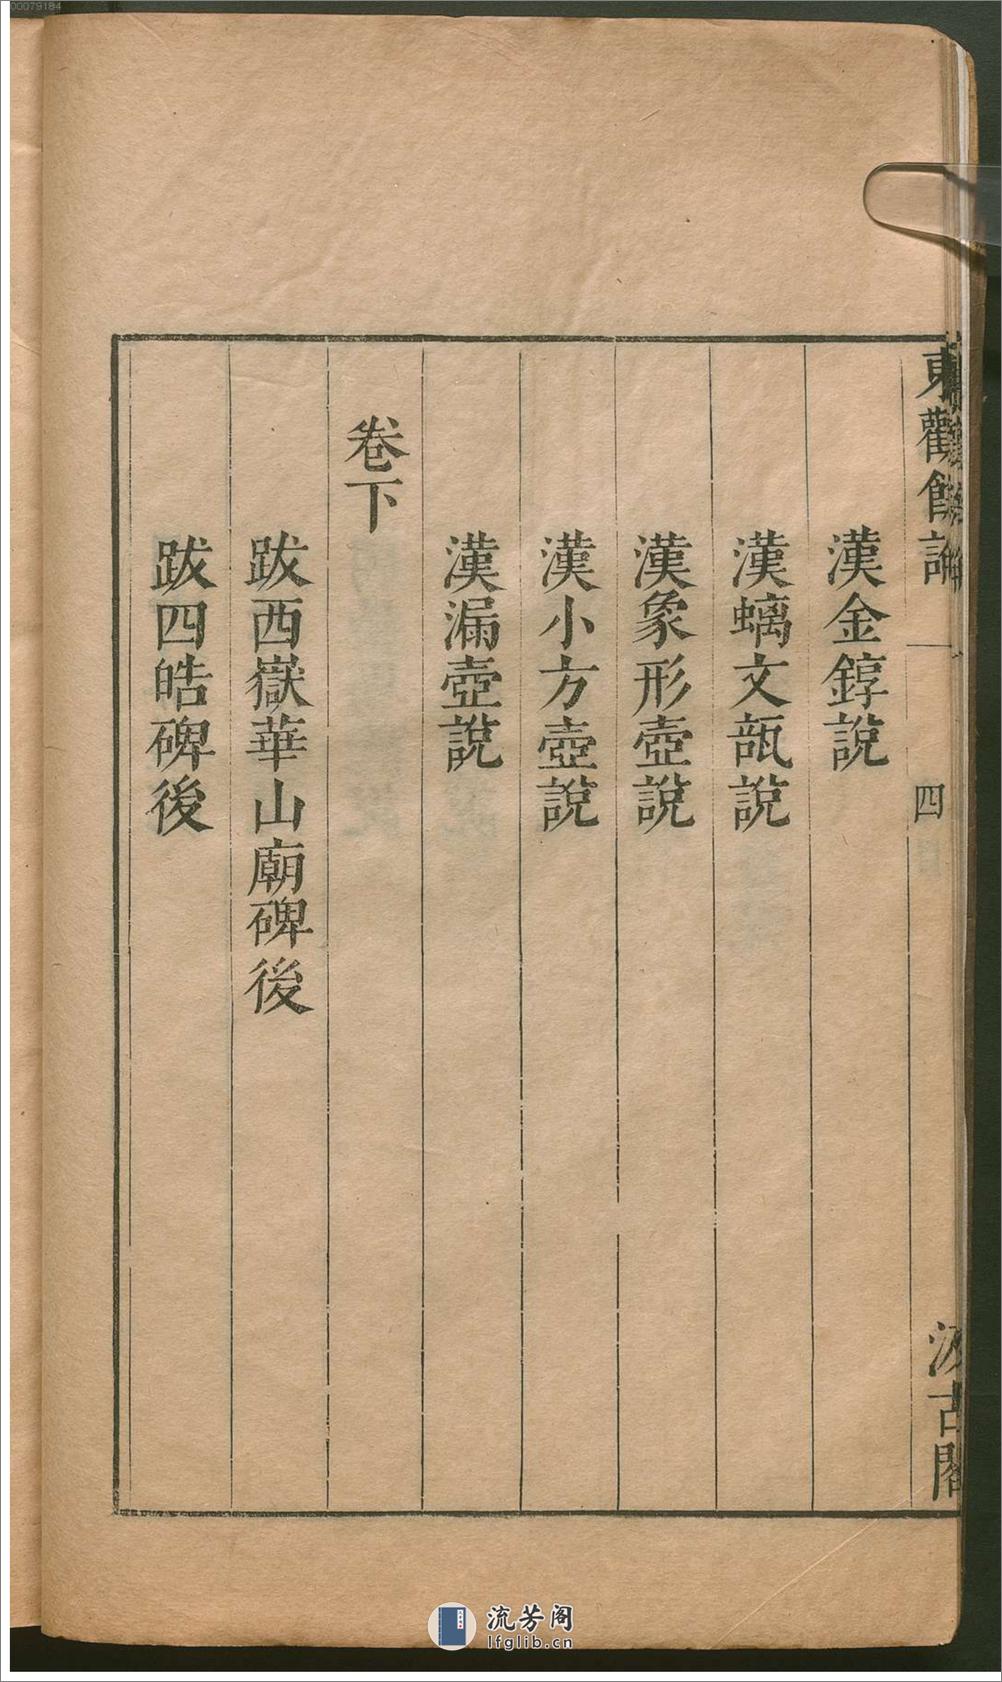 00079184
東觀餘論
四
汲古閣
漢金錞說
漢螭文瓿說
漢象形壺說
漢小方壺說
漢漏壺說
卷下
跋西嶽華山廟碑後
跋四皓碑後
流芳阁
lfglib.cn